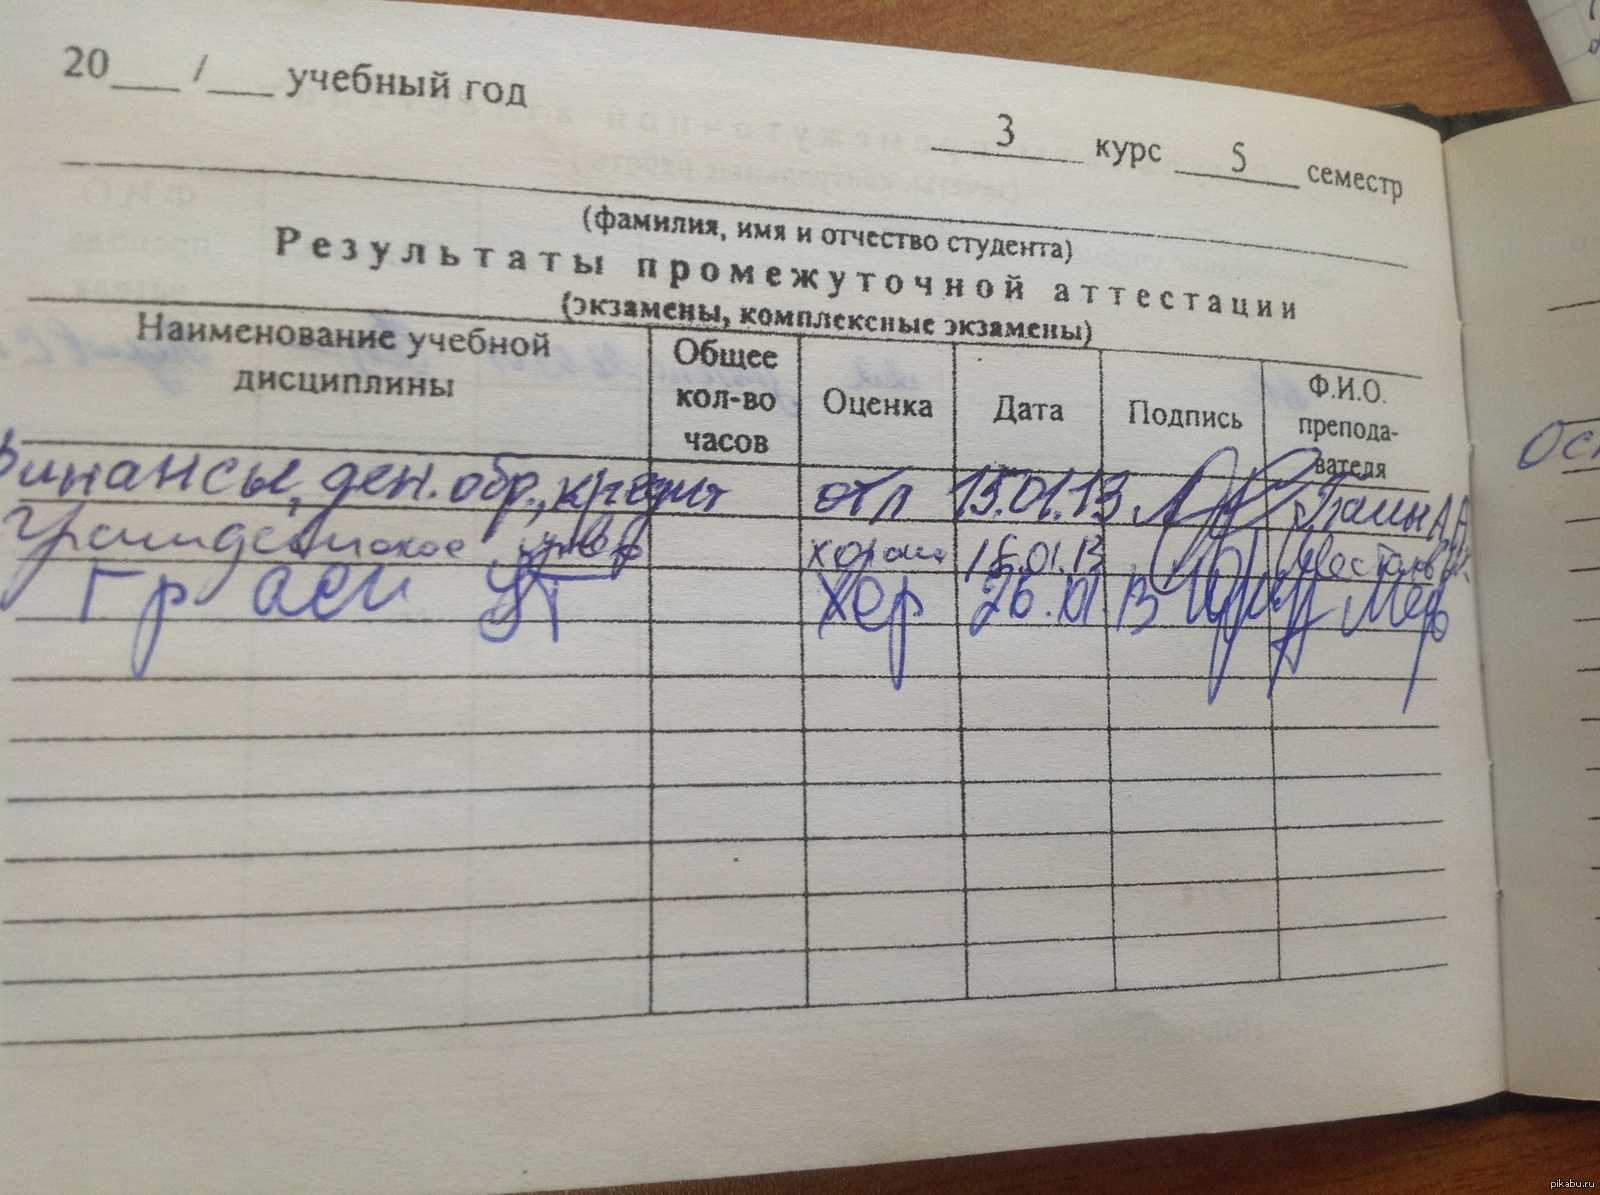 20___/___ учебный год
3 курс 5 семестр
(фамилия, имя и отчество студента)
Результаты промежуточной аттестации
(экзамены, комплексные экзамены)
Наименование учебной дисциплины Общее кол-во часов Оценка Дата Подпись Ф.И.О. препода-вателя
Финансы, ден. обр., кредит отл 15.01.13
Гражданское хорош 18.01.13
Гр хор 26.01 13
Ос
pikabu.ru